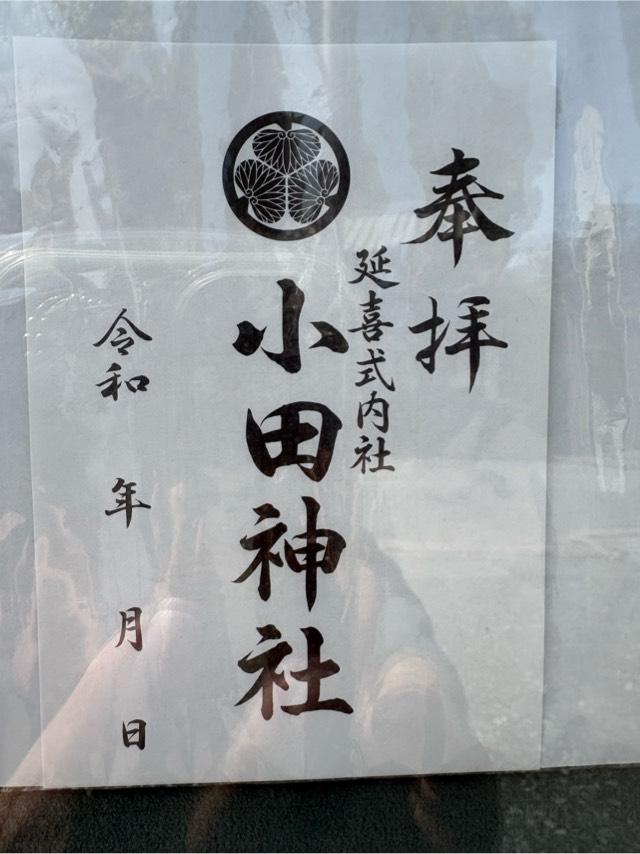 奉拝
延喜式内社
小田神社
令和 年 月 日